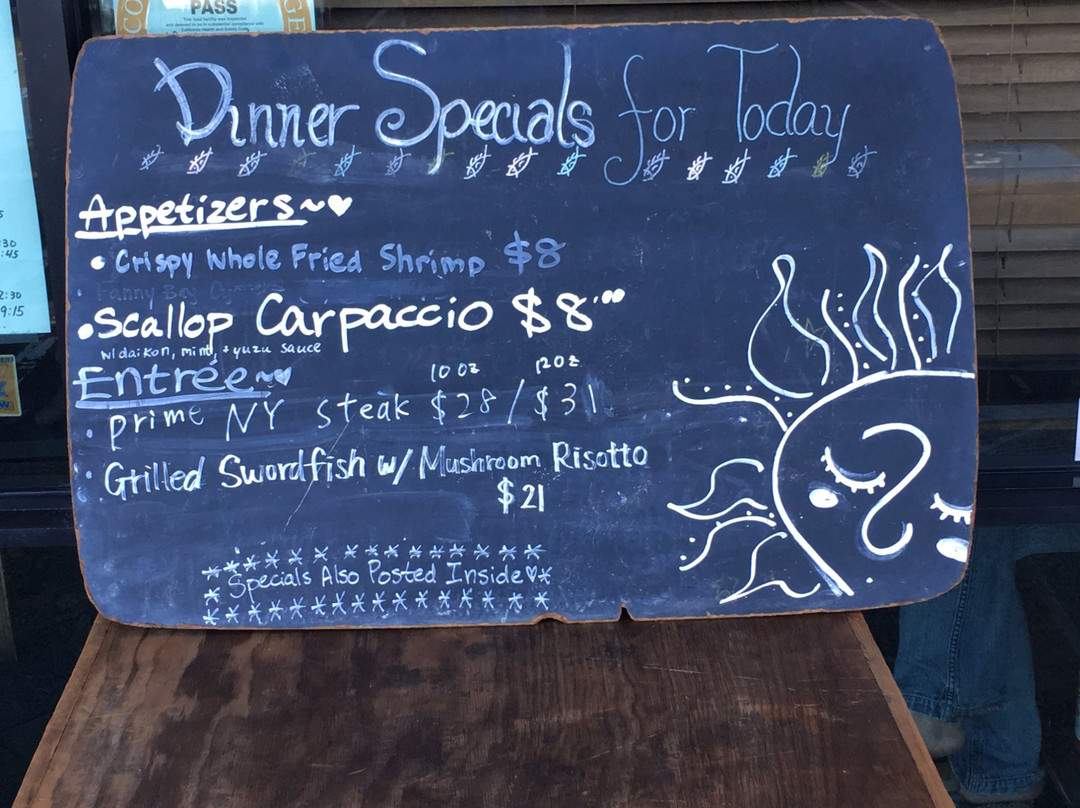 PASS
Dinner Specials for Today
Appetizers~♥
• Crispy Whole Fried Shrimp $8
• Fanny Bay Oysters
• Scallop Carpaccio $8
w/ daikon, mint, + yuzu sauce
Entrée~♥
10 oz 12 oz
• prime NY steak $28 / $31
• Grilled Swordfish w/ Mushroom Risotto
$21
Specials Also Posted Inside ♥
:30
:45
2:30
9:15